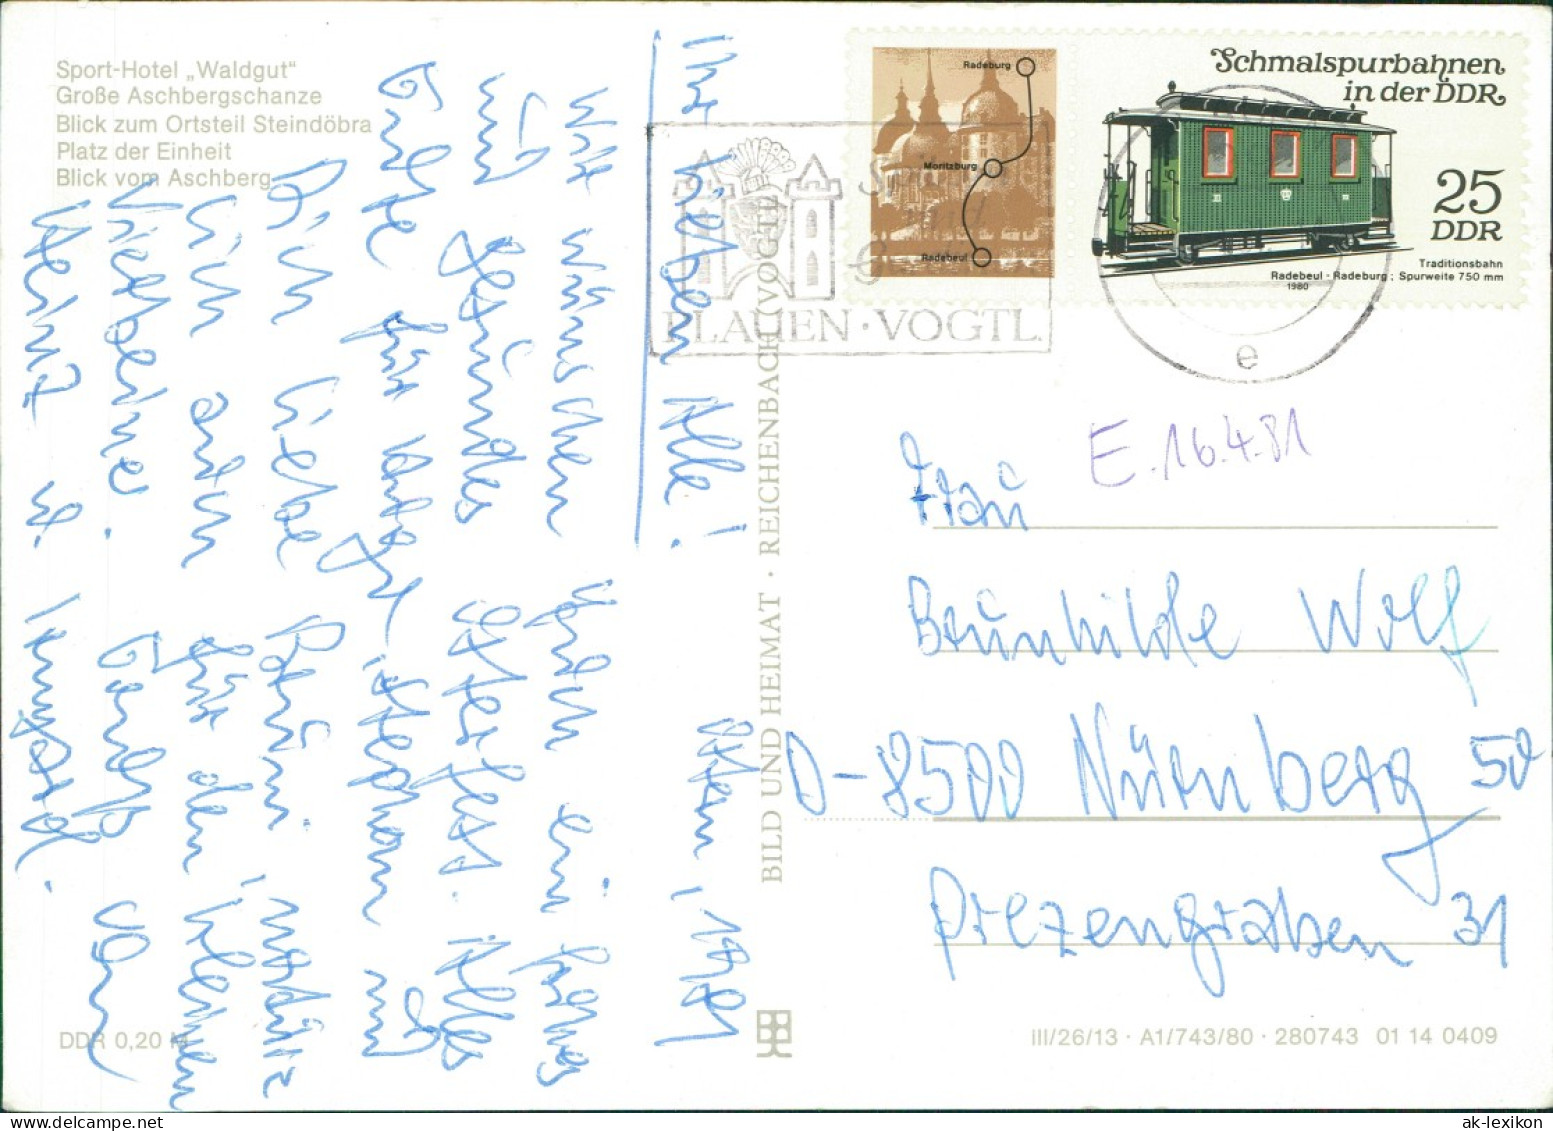 Sport-Hotel „Waldgut"
Große Aschbergschanze
Blick zum Ortsteil Steindöbra
Platz der Einheit
Blick vom Aschberg
Ihr lieben Alle!
Ostern, 1981
Wir wünschen Euch ein frohes
und gesundes Osterfest. Alles
Gute für
Dich liebe Bruni, natürlich
auch für den kleinen
Vierbeiner. Grüß von
Heinz u. Irmgard.
DDR 0,20 M
BILD UND HEIMAT · REICHENBACH (VOGTL)
PLAUEN · VOGTL.
Radeburg
Moritzburg
Radebeul
Schmalspurbahnen
in der DDR
25
DDR
Traditionsbahn
Radebeul - Radeburg; Spurweite 750 mm
1980
e
E. 16.4.81
Frau
Brunhilde Wolf
D-8500 Nürnberg 50
Prezengraben 31
III/26/13 · A1/743/80 · 280743 01 14 0409
ak-lexikon.com